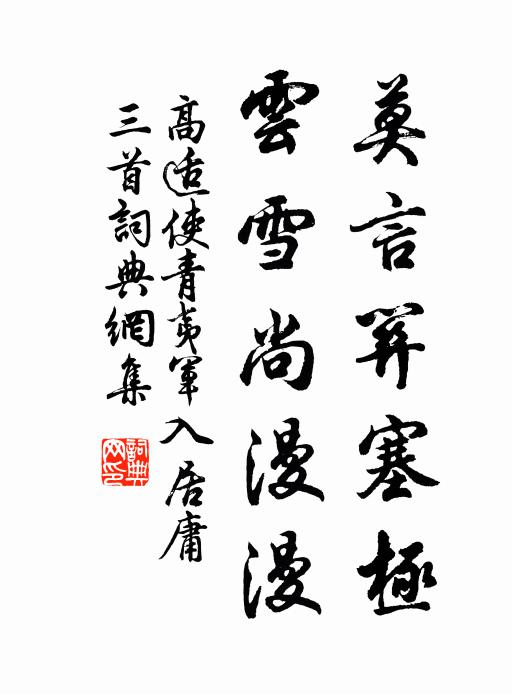 莫言關塞極
雲雪尚漫漫
高適使青夷軍入居庸
三首詞典網集
詞典
网印